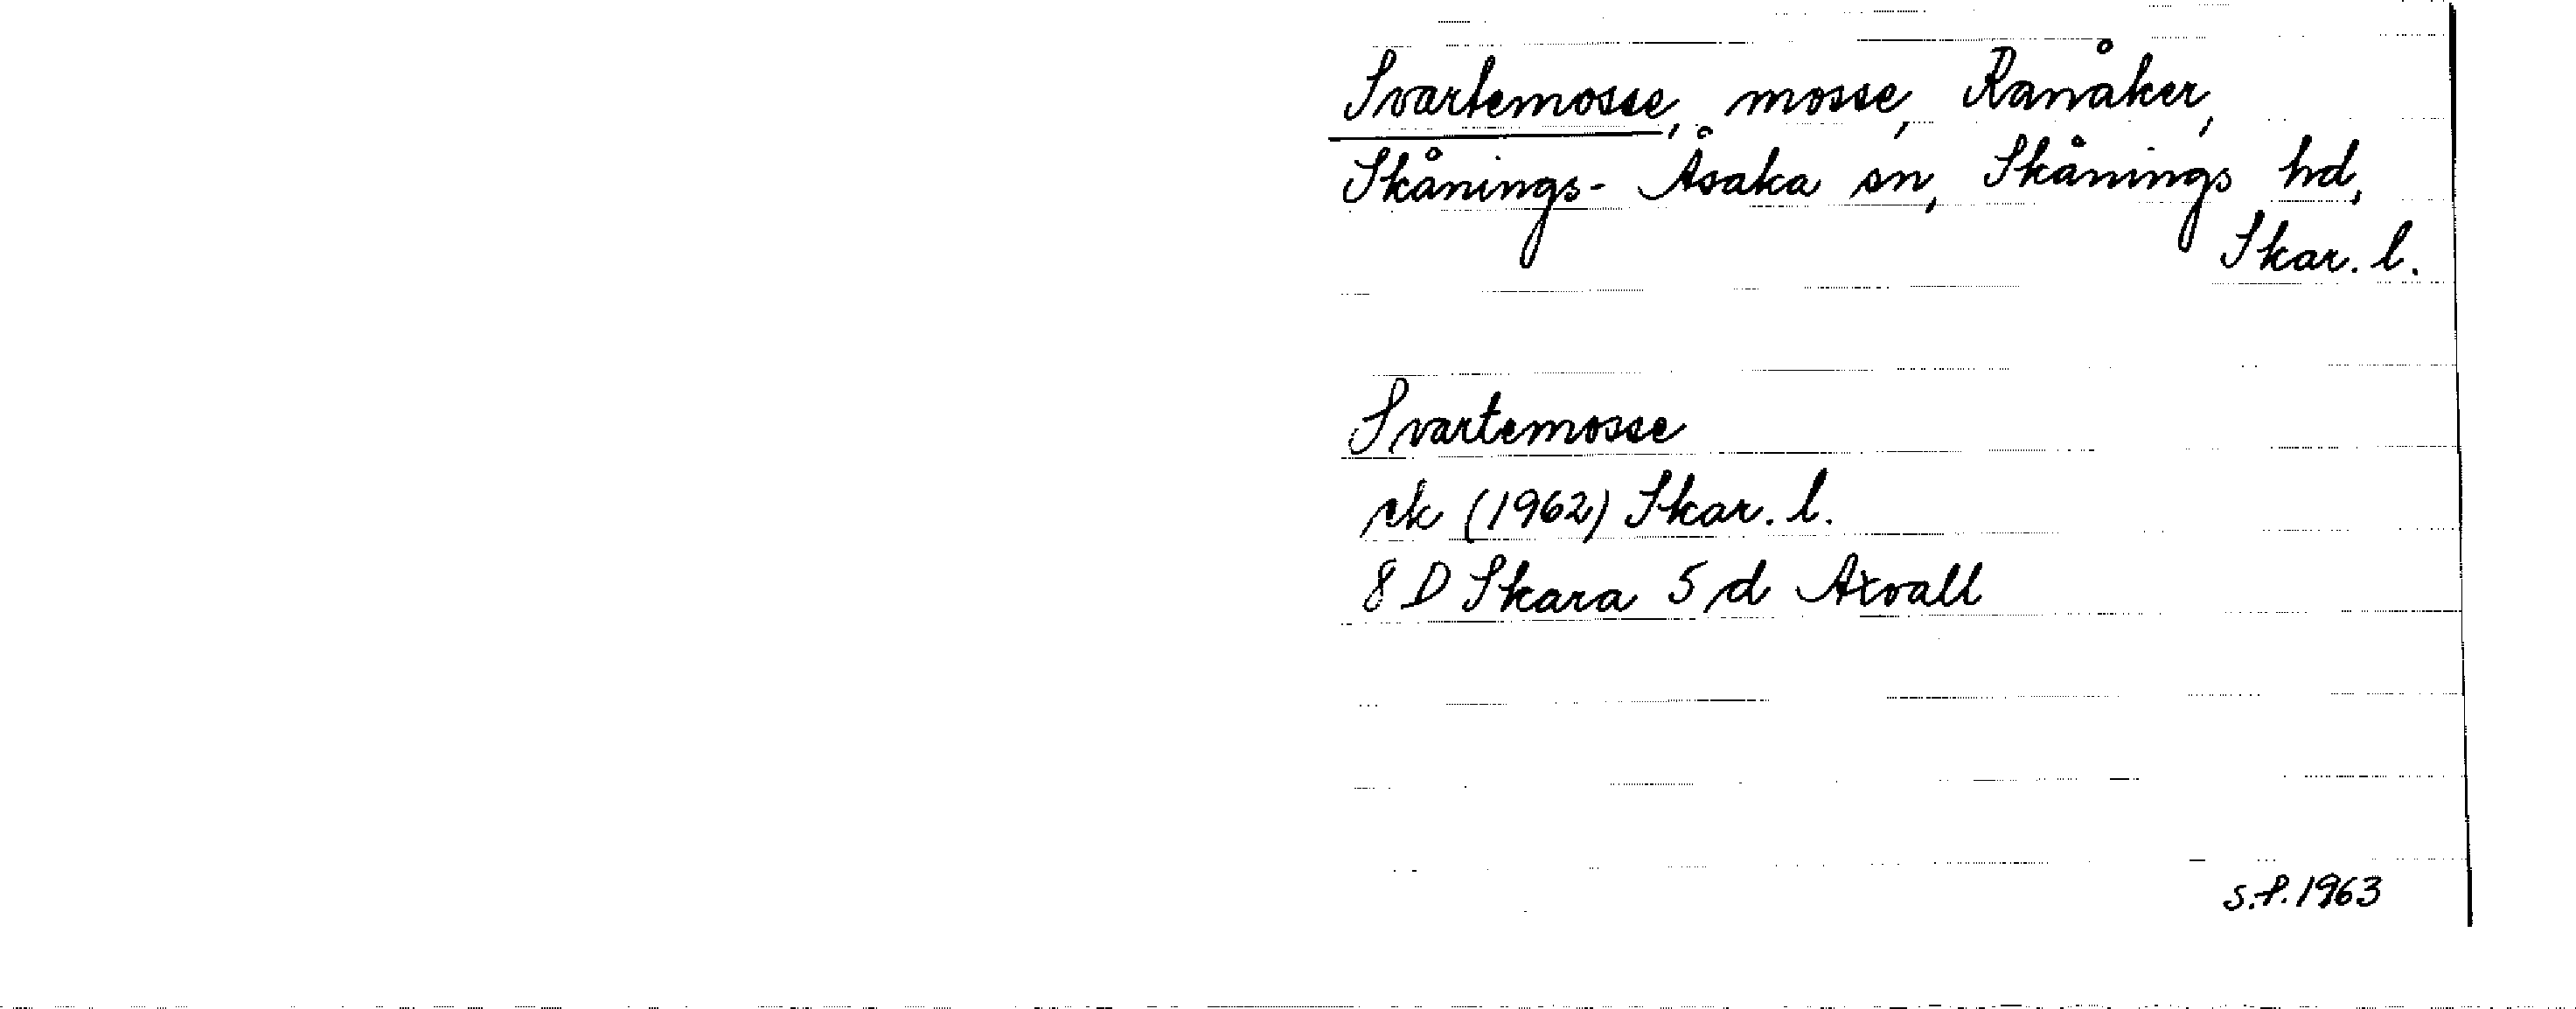 Svartemosse, mosse, Ranåker,
Skånings-Åsaka sn, Skånings hd,
Skar. l.
Svartemosse
rk (1962) Skar. l.
8 D Skara 5 d Axvall
S.P. 1963